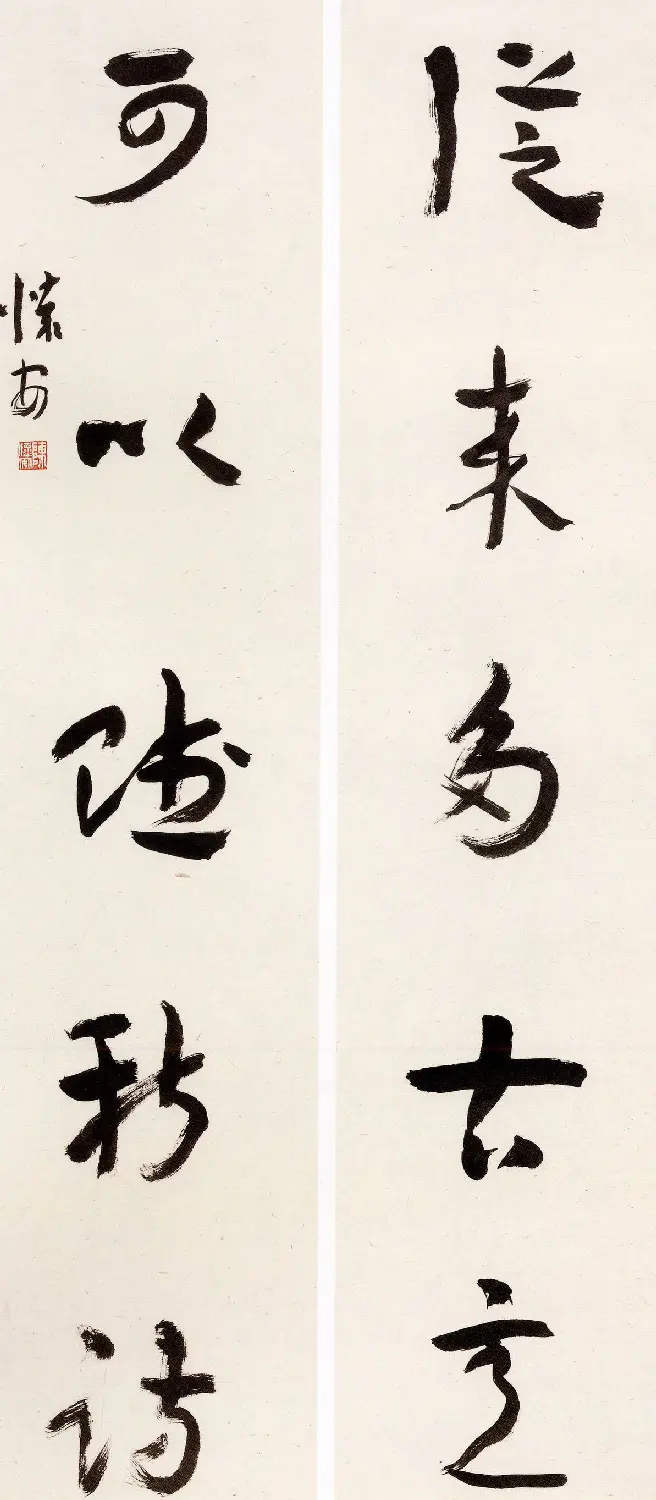 從來多古意
可以賦新詩
懷安